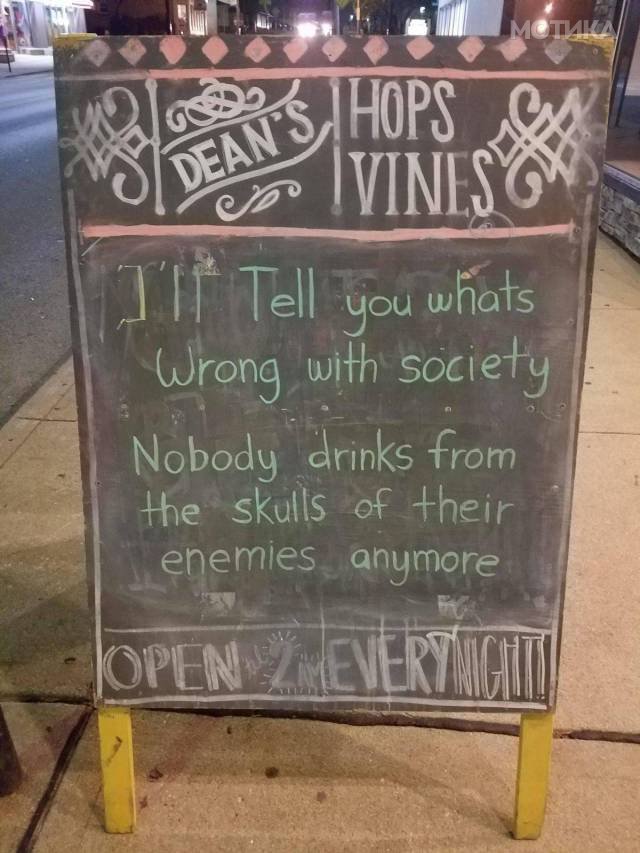 МОТИКА
DEAN'S
HOPS
VINES
I'll Tell you whats
Wrong with society
Nobody drinks from
the skulls of their
enemies anymore
OPEN 2AM EVERY NIGHT!